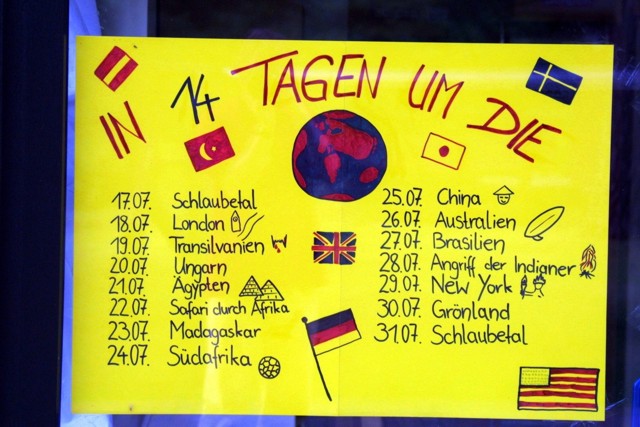 IN 14 TAGEN UM DIE
17.07. Schlaubetal
18.07. London
19.07. Transilvanien
20.07. Ungarn
21.07. Ägypten
22.07. Safari durch Afrika
23.07. Madagaskar
24.07. Südafrika
25.07. China
26.07. Australien
27.07. Brasilien
28.07. Angriff der Indianer
29.07. New York
30.07. Grönland
31.07. Schlaubetal